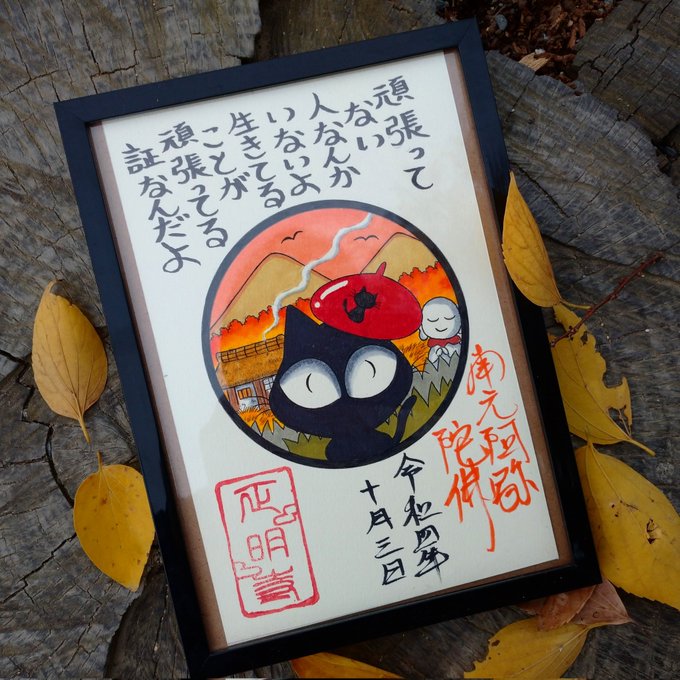 頑張って
ない
人なんか
いないよ
生きてる
ことが
頑張ってる
証なんだよ
南无阿弥
陀佛
令和四年
十月三日
正明寺